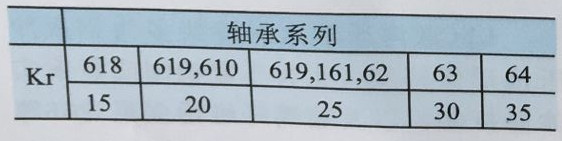 轴承系列
Kr 618 619,610 619,161,62 63 64
15 20 25 30 35